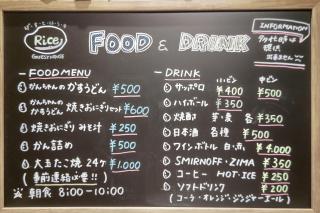 げすとはうす
Rice
GUESTHOUSE
FOOD & DRINK
INFORMATION
FOOD MENU
がんちゃんの かすうどん ¥500
がんちゃんの
かすうどん 焼きおにぎりセット ¥600
焼きおにぎり みそ汁 ¥250
かん詰め ¥500
大玉たこ焼 24ケ ¥1.000
(事前連絡必要!!)
朝食 8:00-10:00
DRINK
小ビン 中ビン
サッポロ ¥400 ¥500
ハイボール ¥350
焼酎 芋・麦 各 ¥350
日本酒 各種 ¥500
ワインボトル 白・赤 ¥4.000
SMIRNOFF・ZIMA ¥350
コーヒー HOT・ICE ¥250
ソフトドリンク ¥200
(コーラ・オレンジ・ジンジャーエール)